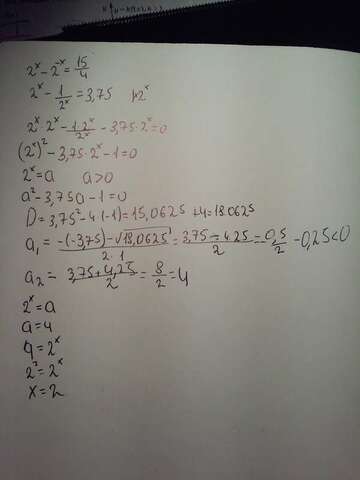 2^x - 2^-x = 15/4
2^x - 1/2^x = 3,75 |·2^x
2^x · 2^x - 1·2^x/2^x - 3,75·2^x = 0
(2^x)^2 - 3,75·2^x - 1 = 0
2^x = a a>0
a^2 - 3,75a - 1 = 0
D = 3,75^2 - 4·(-1) = 15,0625 + 4 = 18.0625
a1 = -(-3,75) - √18,0625 / 2·1 = 3,75 - 4.25 / 2 = -0,5/2 - 0,25 < 0
a2 = 3,75 + 4,25 / 2 = 8/2 = 4
2^x = a
a = 4
4 = 2^x
2^2 = 2^x
x = 2